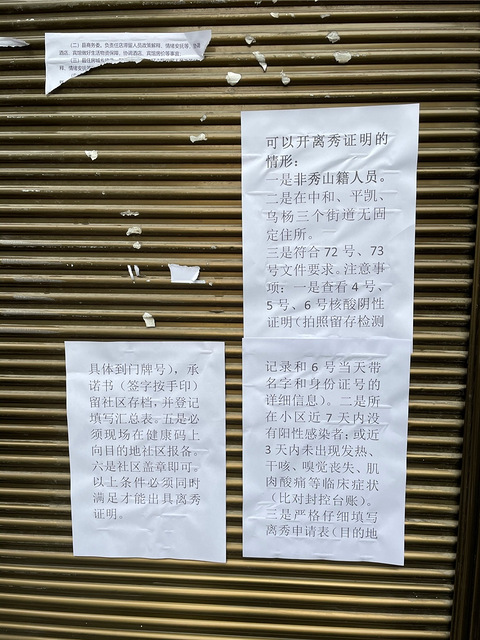 （二）县商务委。负责住店滞留人员政策解释、情绪安抚等，协调
酒店、宾馆做好生活物资保障，协调酒店、宾馆房价等事宜。
释、情绪安抚等
可以开离秀证明的
情形：
一是非秀山籍人员。
二是在中和、平凯、
乌杨三个街道无固
定住所。
三是符合 72 号、73
号文件要求。注意事
项：一是查看 4 号、
5 号、6 号核酸阴性
证明（拍照留存检测
记录和 6 号当天带
名字和身份证号的
详细信息）。二是所
在小区近 7 天内没
有阳性感染者；或近
3 天内未出现发热、
干咳、嗅觉丧失、肌
肉酸痛等临床症状
（比对封控台账）。
三是严格仔细填写
离秀申请表（目的地
具体到门牌号），承
诺书（签字按手印）
留社区存档，并登记
填写汇总表。五是必
须现场在健康码上
向目的地社区报备。
六是社区盖章即可。
以上条件必须同时
满足才能出具离秀
证明。